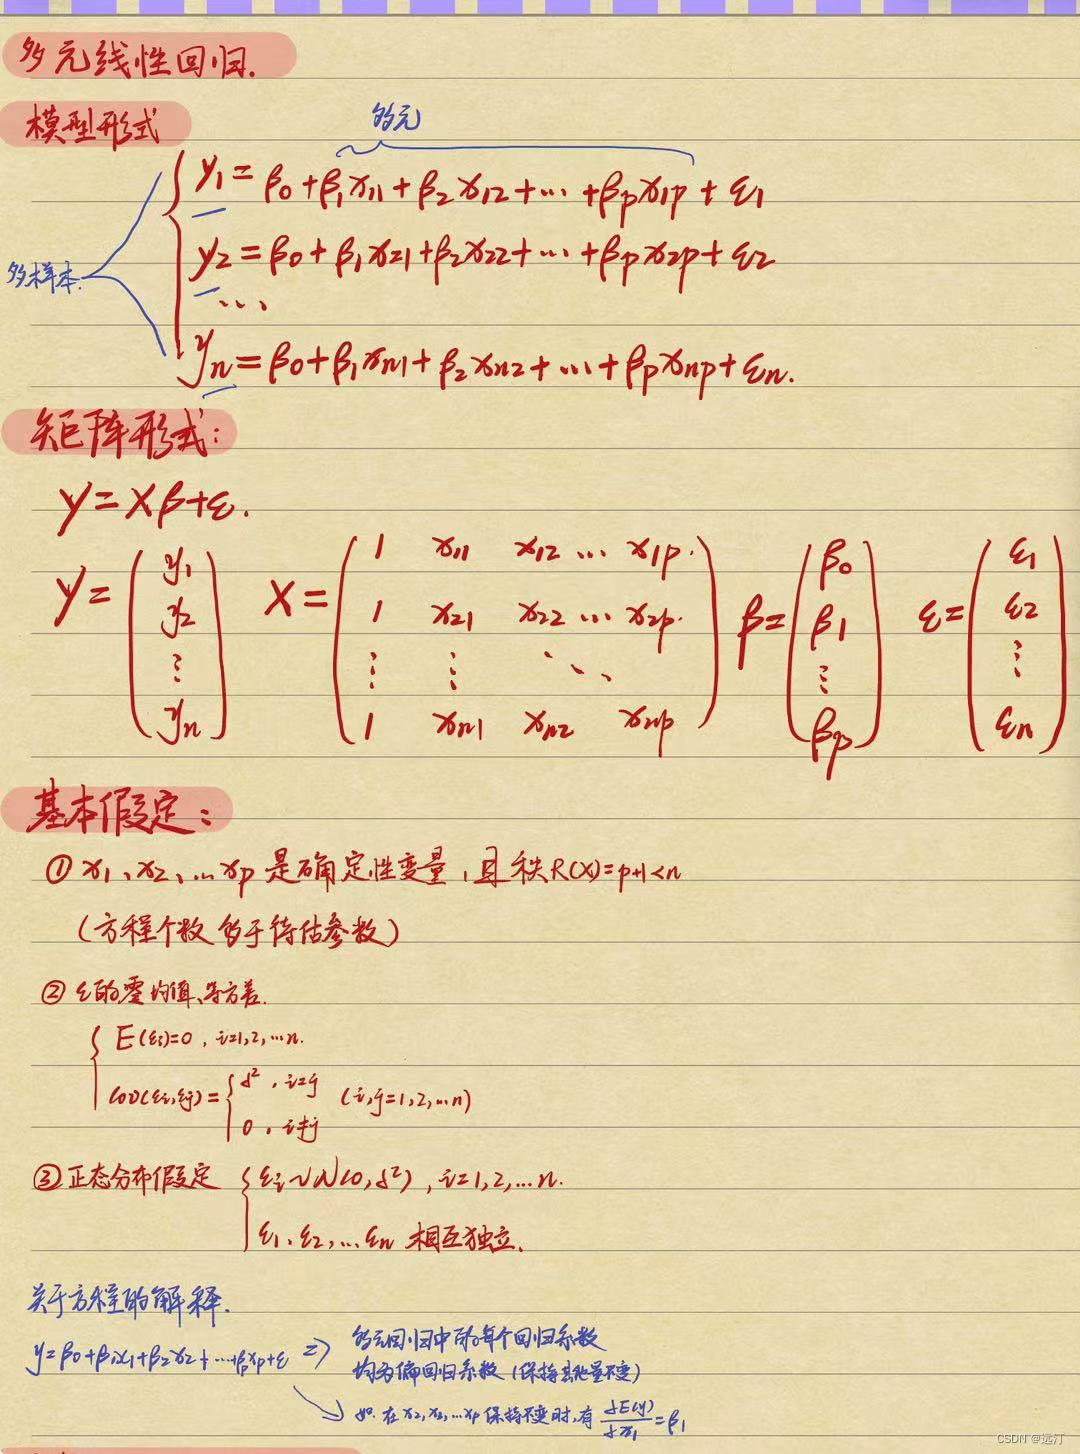 多元线性回归.
模型形式
多元
y₁=β₀+β₁x₁₁+β₂x₁₂+…+βₚx₁ₚ+ε₁
y₂=β₀+β₁x₂₁+β₂x₂₂+…+βₚx₂ₚ+ε₂
多样本.
…
yₙ=β₀+β₁xₙ₁+β₂xₙ₂+…+βₚxₙₚ+εₙ.
矩阵形式:
y=Xβ+ε.
y=(y₁ y₂ ⋮ yₙ) X=(1 x₁₁ x₁₂ … x₁ₚ. 1 x₂₁ x₂₂ … x₂ₚ. ⋮ ⋮ ⋱ 1 xₙ₁ xₙ₂ xₙₚ) β=(β₀ β₁ ⋮ βₚ) ε=(ε₁ ε₂ ⋮ εₙ)
基本假定:
① x₁、x₂、…xₚ 是确定性变量,且秩R(X)=p+1<n
(方程个数多于待估参数)
② ε的零均值、等方差.
E(εᵢ)=0, i=1,2,…n.
cov(εᵢ,εⱼ)={σ², i=j (i,j=1,2,…n)
0, i≠j
③ 正态分布假定 {εᵢ~N(0,σ²), i=1,2,…n.
ε₁、ε₂,…εₙ 相互独立.
关于方程的解释.
y=β₀+β₁x₁+β₂x₂+…+βₚxₚ+ε ⇒ 多元回归中的每个回归系数
均为偏回归系数(保持其他量不变)
如.在x₂,x₃,…xₚ保持不变时,有 ∂E(y)/∂x₁=β₁
CSDN @远汀